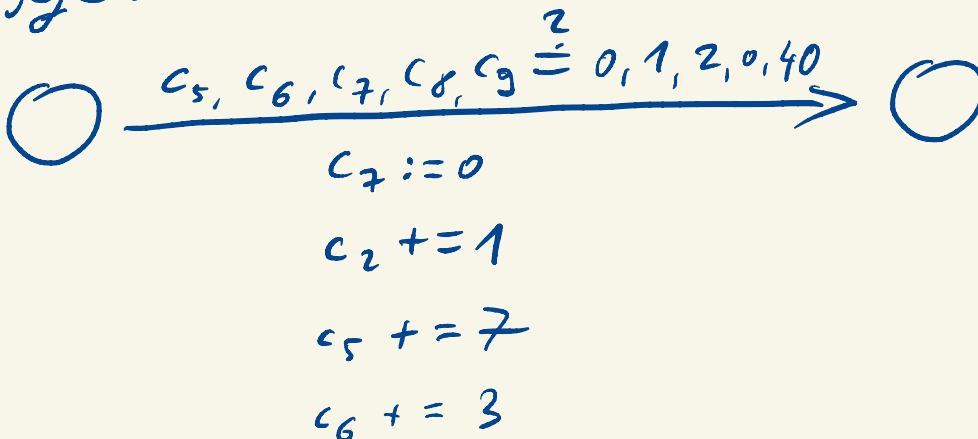 c₅, c₆, c₇, c₈, c₉ ≟ 0, 1, 2, 0, 40
c₇ := 0
c₂ += 1
c₅ += 7
c₆ += 3